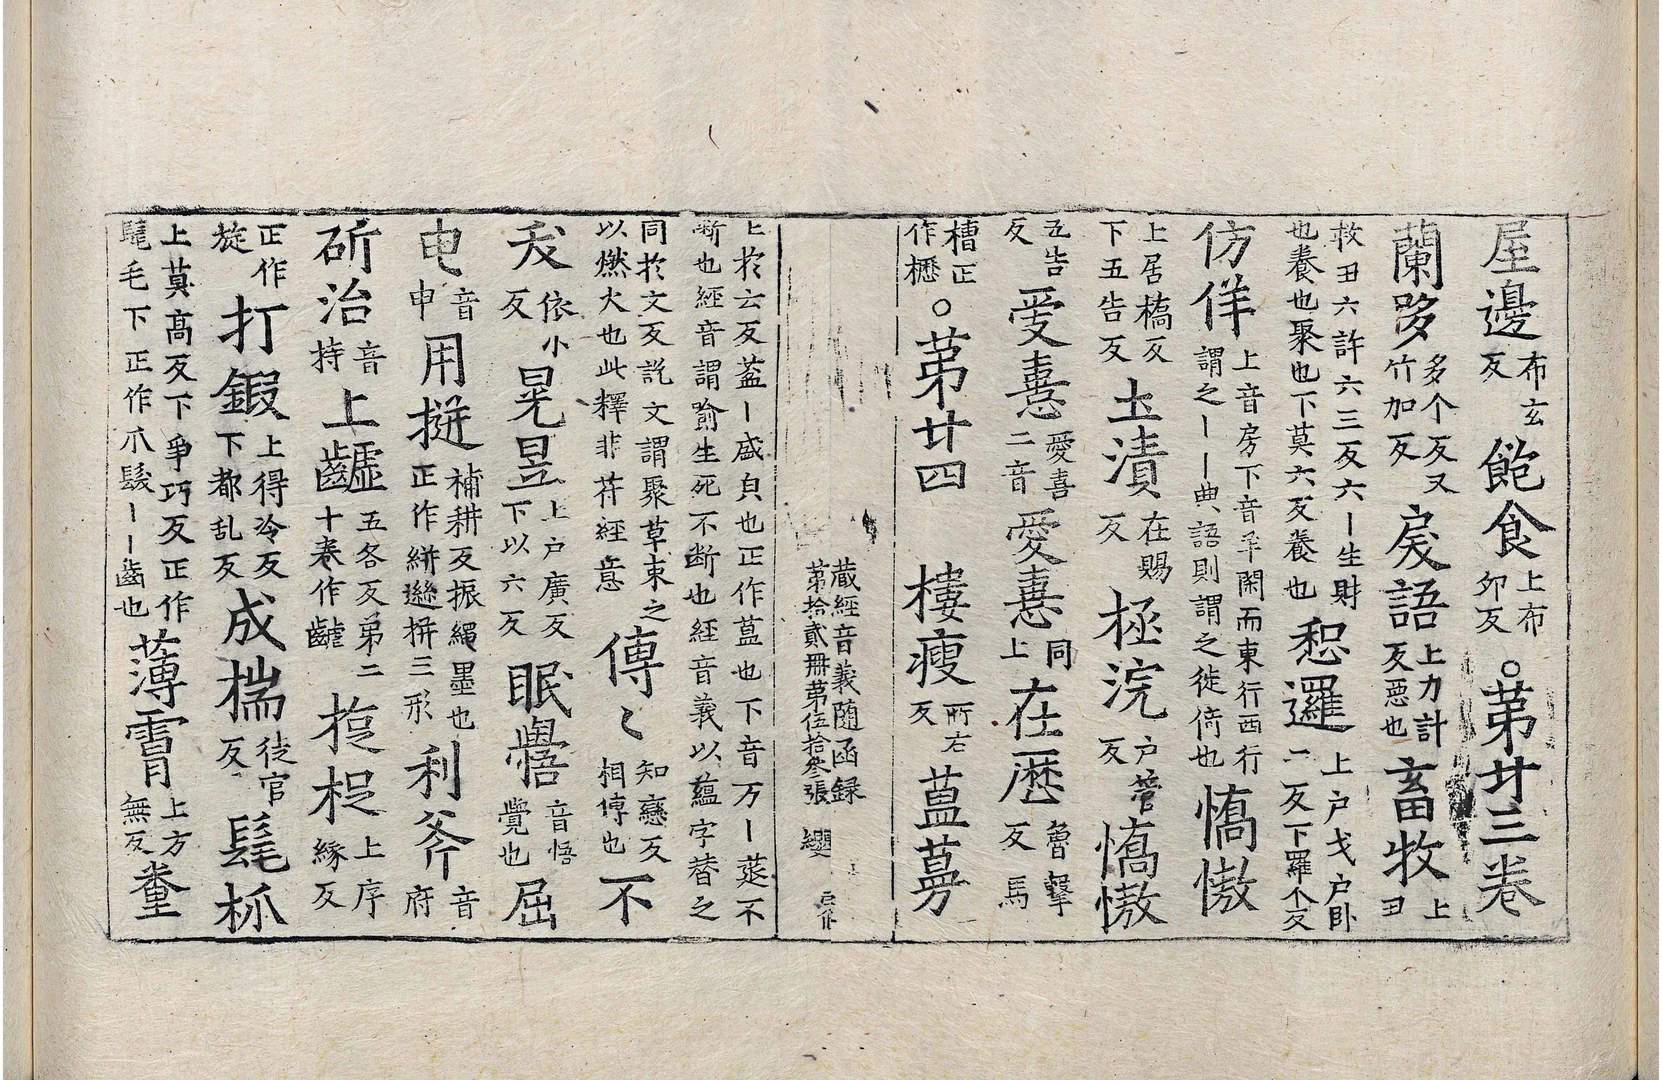 屋邊布玄反飽食上布卯反○苐廿三卷
蘭哆多个反又竹加反戾語上力計反惡也畜牧上丑
救丑六許六三反六丨生財也養也聚也下莫六反養也恕邏上戶戈戶卧二反下羅个反
仿佯上音房下音羊閑而東行西行謂之丨丨典語則謂之徙倚也憍慠
上居橋反下五告反土漬在賜反極浣戶管反憍慠
五告反愛憙愛喜二音愛憙同上在歷魯擊反馬
槽正作櫪○苐廿四 樓瘦所右反蒀蔓
藏經音義随函録苐拾貳冊苐伍拾叄張 纓
上扵云反葢丨盛皃也正作蒀也下音万丨莚不斷也經音謂喻生死不断也經音義以蘊字替之
同扵文反說文謂聚草束之以燃火也此釋非苻經意傳〻知戀反相傳也不
叐依小反晃昱上戶廣反下以六反眠寤音悟覺也屈
电音申用搓補耕反振繩墨也正作絣逰拼三形利斧音府
斫治音持上齶五各反苐二十卷作齶捉上序緣反
正作旋打鍜上得冷反下都乱反成椯徒官反髦
上莫高反下爭巧反正作髦毛下正作爪髮丨丨齒也薄霄上方無反